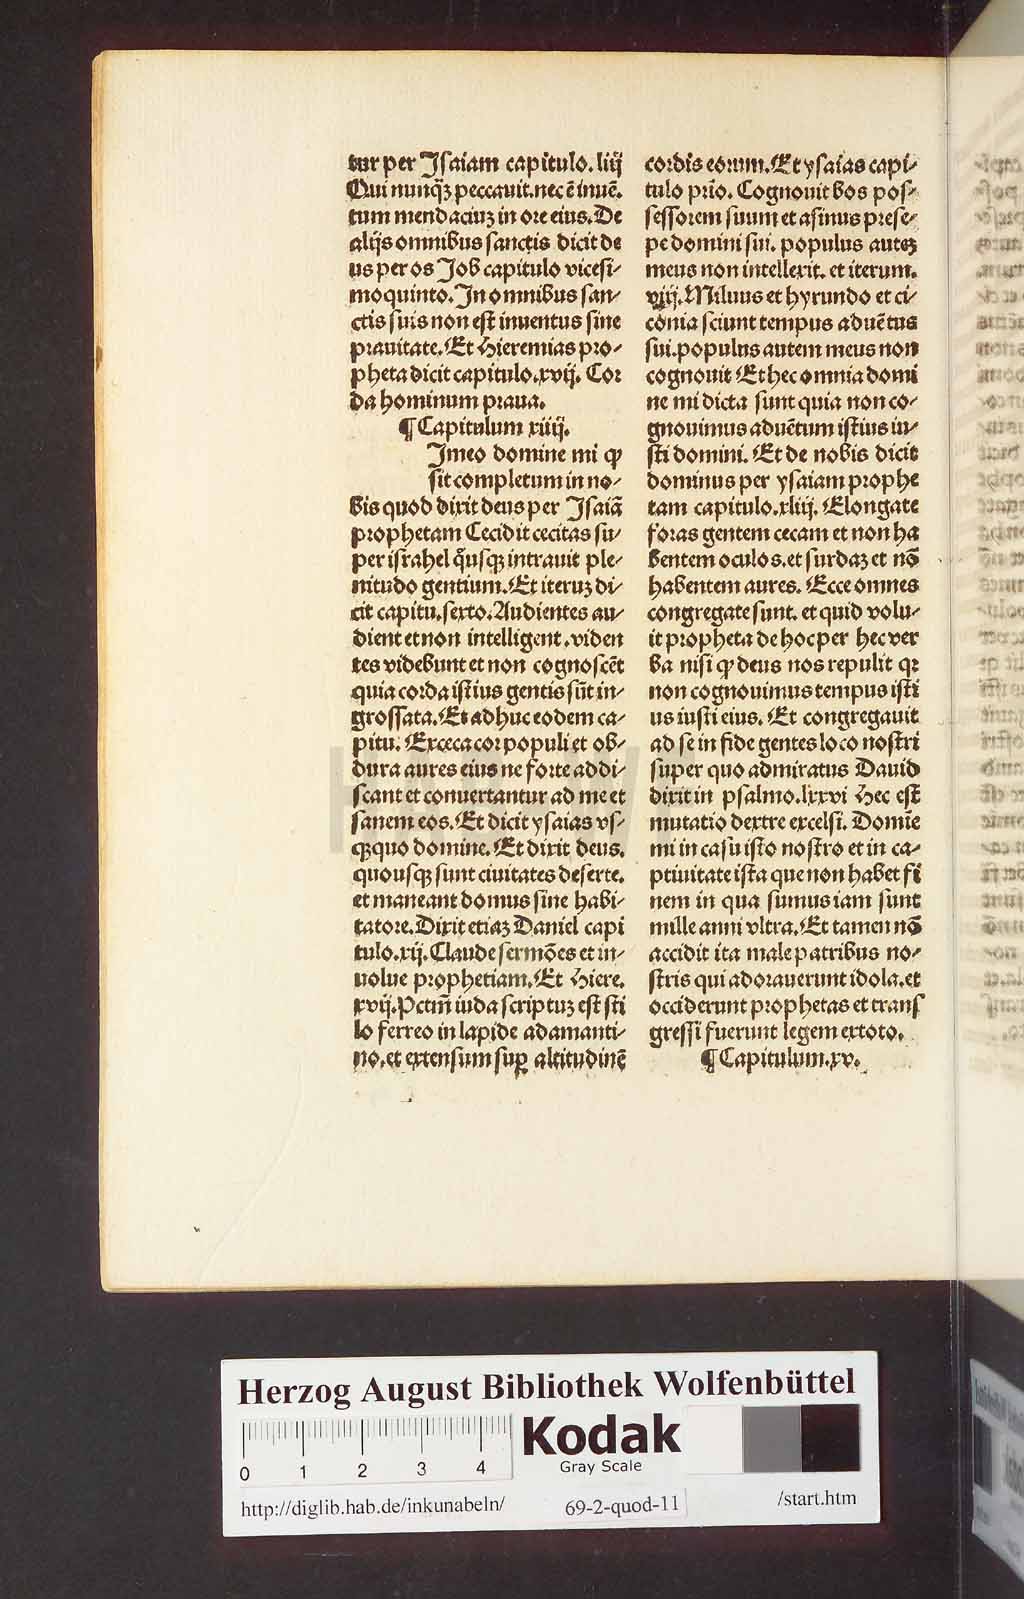 tur per Jsaiam capitulo. liij
Qui nunqȝ peccauit.nec ē inuē.
tum mendaciuȝ in ore eius. De
alijs omnibus sanctis dicit de
us per os Job capitulo vicesi-
mo quinto. Jn omnibus san-
ctis suis non est inuentus sine
prauitate. Et Hieremias pro-
pheta dicit capitulo.xvij. Cor
da hominum praua.
¶ Capitulum xiiij.
Jmeo domine mi ꝙ
sit completum in no-
bis quod dixit deus per Jsaiā
prophetam Cecidit cecitas su-
per israhel q̊usqȝ intrauit ple-
nitudo gentium. Et iteruȝ di-
cit capitu.sexto. Audientes au-
dient et non intelligent.viden
tes videbunt et non cognoscēt
quia corda istius gentis sūt in-
grossata. Et adhuc eodem ca-
pitu. Exceca cor populi et ob-
dura aures eius ne forte addi-
scant et conuertantur ad me et
sanem eos. Et dicit ysaias vs-
qȝquo domine. Et dixit deus.
quousqȝ sunt ciuitates deserte.
et maneant domus sine habi-
tatore. Dixit etiaȝ Daniel capi
tulo.xij. Claude sermōes et in-
uolue prophetiam. Et Hiere.
xvij. Pctm̄ iuda scriptuȝ est sti
lo ferreo in lapide adamanti-
no.et extensum suꝑ altitudinē
cordis eorum. Et ysaias capi-
tulo prīo. Cognouit bos pos-
sessorem suum et asinus prese-
pe domini sui. populus auteȝ
meus non intellexit. et iterum.
viij. Miluus et hyrundo et ci-
conia sciunt tempus aduētus
sui.populus autem meus non
cognouit Et hec omnia domi
ne mi dicta sunt quia non co-
gnouimus aduētum istius iu-
sti domini. Et de nobis dicit
dominus per ysaiam prophe
tam capitulo.xliij. Elongate
foras gentem cecam et non ha
bentem oculos.et surdaȝ et nō
habentem aures. Ecce omnes
congregate sunt. et quid volu-
it propheta de hoc per hec ver
ba nisi ꝙ deus nos repulit qꝛ
non cognouimus tempus isti
us iusti eius. Et congregauit
ad se in fide gentes loco nostri
super quo admiratus Dauid
dixit in psalmo.lxxvi Hec est
mutatio dextre excelsi. Domīe
mi in casu isto nostro et in ca-
ptiuitate ista que non habet fi
nem in qua sumus iam sunt
mille anni vltra. Et tamen nō
accidit ita male patribus no-
stris qui adorauerunt idola.et
occiderunt prophetas et trans
gressi fuerunt legem extoto.
¶ Capitulum.xv.
Herzog August Bibliothek Wolfenbüttel
0 1 2 3 4
Kodak
Gray Scale
http://diglib.hab.de/inkunabeln/ 69-2-quod-11 /start.htm